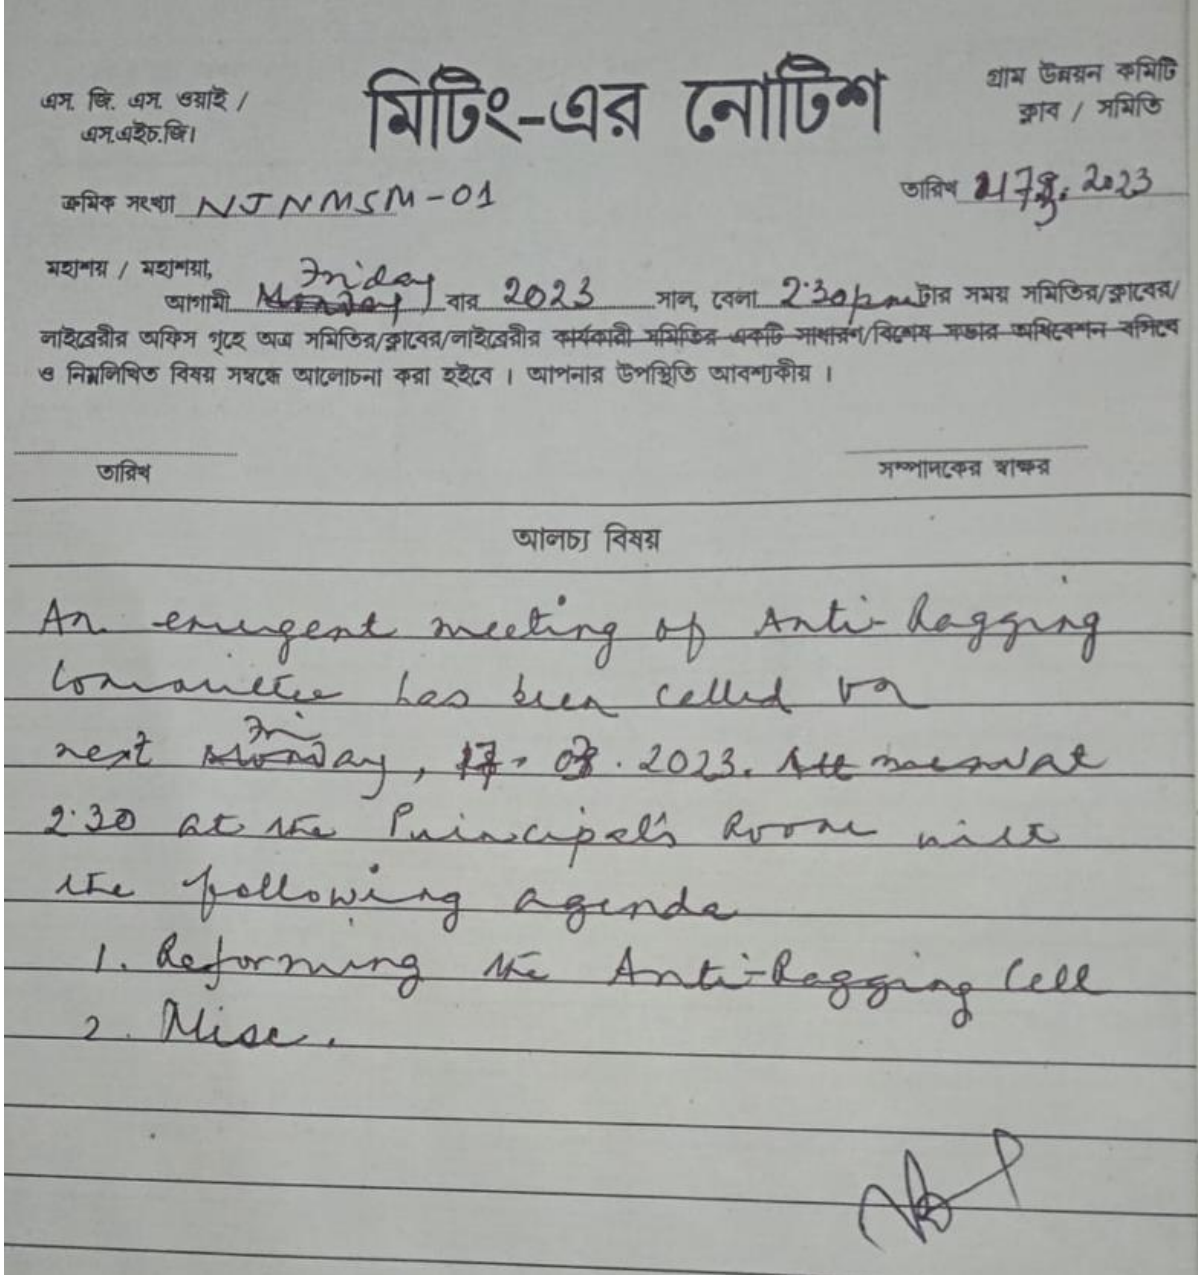 এস. জি. এস. ওয়াই /
এস.এইচ.জি।
মিটিং-এর নোটিশ
গ্রাম উন্নয়ন কমিটি
ক্লাব / সমিতি
ক্রমিক সংখ্যা NJNMSM-01
তারিখ 2023
মহাশয় / মহাশয়া,
Friday
আগামী Monday বার 2023 সাল, বেলা 2.30 pm টার সময় সমিতির/ক্লাবের/
লাইব্রেরীর অফিস গৃহে অত্র সমিতির/ক্লাবের/লাইব্রেরীর কার্যকারী সমিতির একটি সাধারণ/বিশেষ সভার অধিবেশন বসিবে
ও নিম্নলিখিত বিষয় সম্বন্ধে আলোচনা করা হইবে । আপনার উপস্থিতি আবশ্যকীয় ।
তারিখ
সম্পাদকের স্বাক্ষর
আলচ্য বিষয়
An emergent meeting of Anti-Ragging
Committee has been called on
Fri
next Monday, 17. . 2023. at
2.30 at the Principal's Room with
the following agenda
1. Reforming the Anti-Ragging Cell
2. Misc.